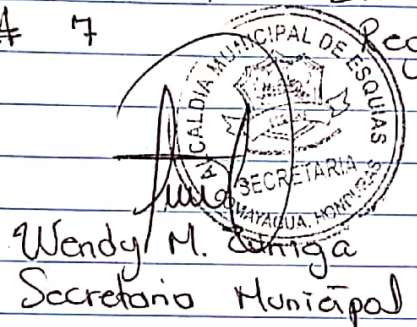 7
ALCALDIA MUNICIPAL DE ESQUIAS
SECRETARIA
COMAYAGUA, HONDURAS
Wendy M. Zuniga
Secretario Municipal